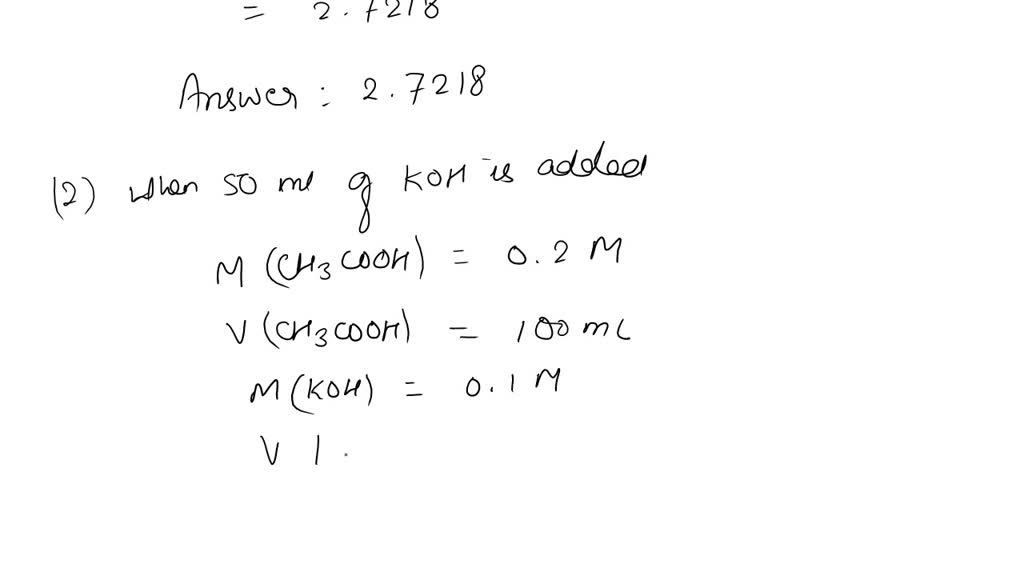 = 2.7218
Answer : 2.7218
(2) when 50 ml of KOH is added
M (CH3COOH) = 0.2 M
V (CH3COOH) = 100 mL
M (KOH) = 0.1 M
V